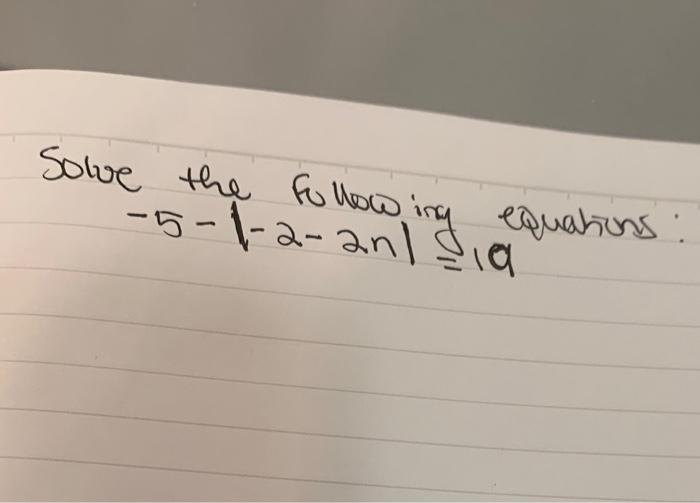 Solve the following equations:
-5-|-2-2n| = 19